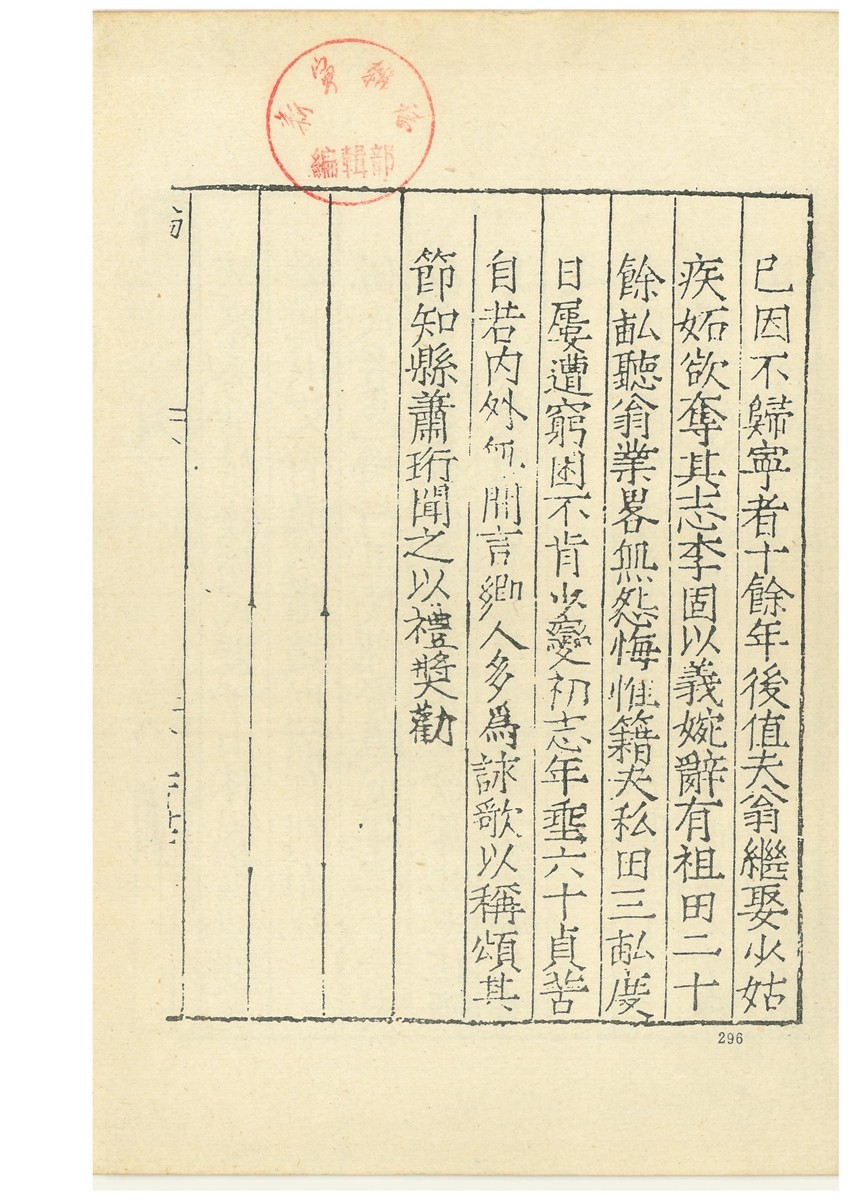 編輯部
已因不歸寧者十餘年後值夫翁繼娶少姑
疾妬欲奪其志李固以義婉辭有祖田二十
餘畝聽翁業畧無怨悔惟籍夫私田三畝度
日屢遭窮困不肯少變初志年垂六十貞苦
自若内外無間言鄉人多爲詠歌以稱頌其
節知縣蕭珩聞之以禮奬勸
296